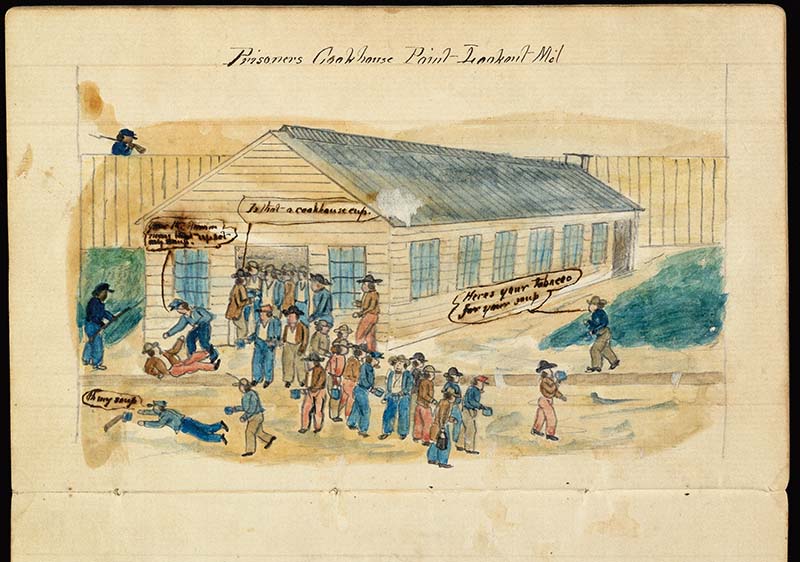 Prisoners Cookhouse Point Lookout Md
Is that a cookhouse cup.
my soup.
Heres your tobacco
for your soup
Oh my soup